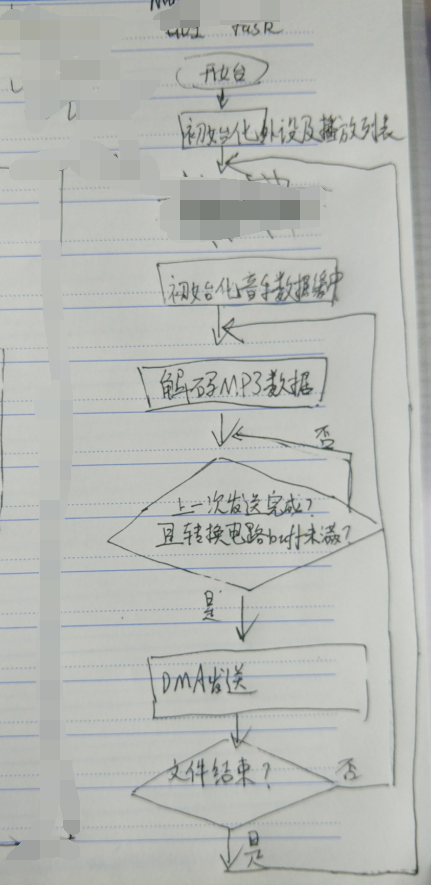 开始
初始化外设及播放列表
初始化音乐数据缓冲
解码MP3数据
否
上一次发送完成?
且转换电路buff未满?
是
DMA发送
文件结束?
否
是